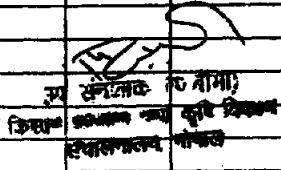 उप संचालक (फ बीमा)
किसान कल्याण तथा कृषि विकास
संचालनालय, भोपाल